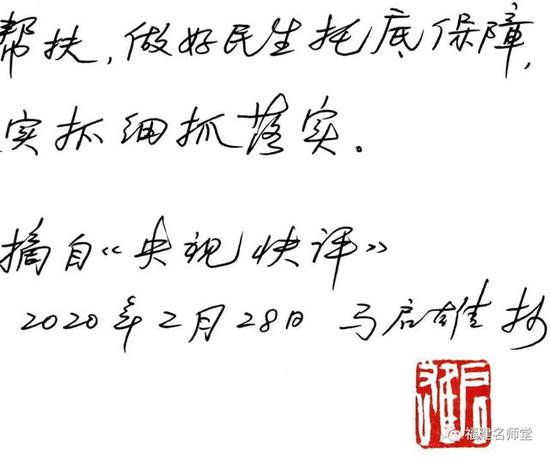 帮扶,做好民生托底保障,
实抓细抓落实。
摘自《央视快评》
2020年2月28日 马启雄抄
启雄
福建名师堂